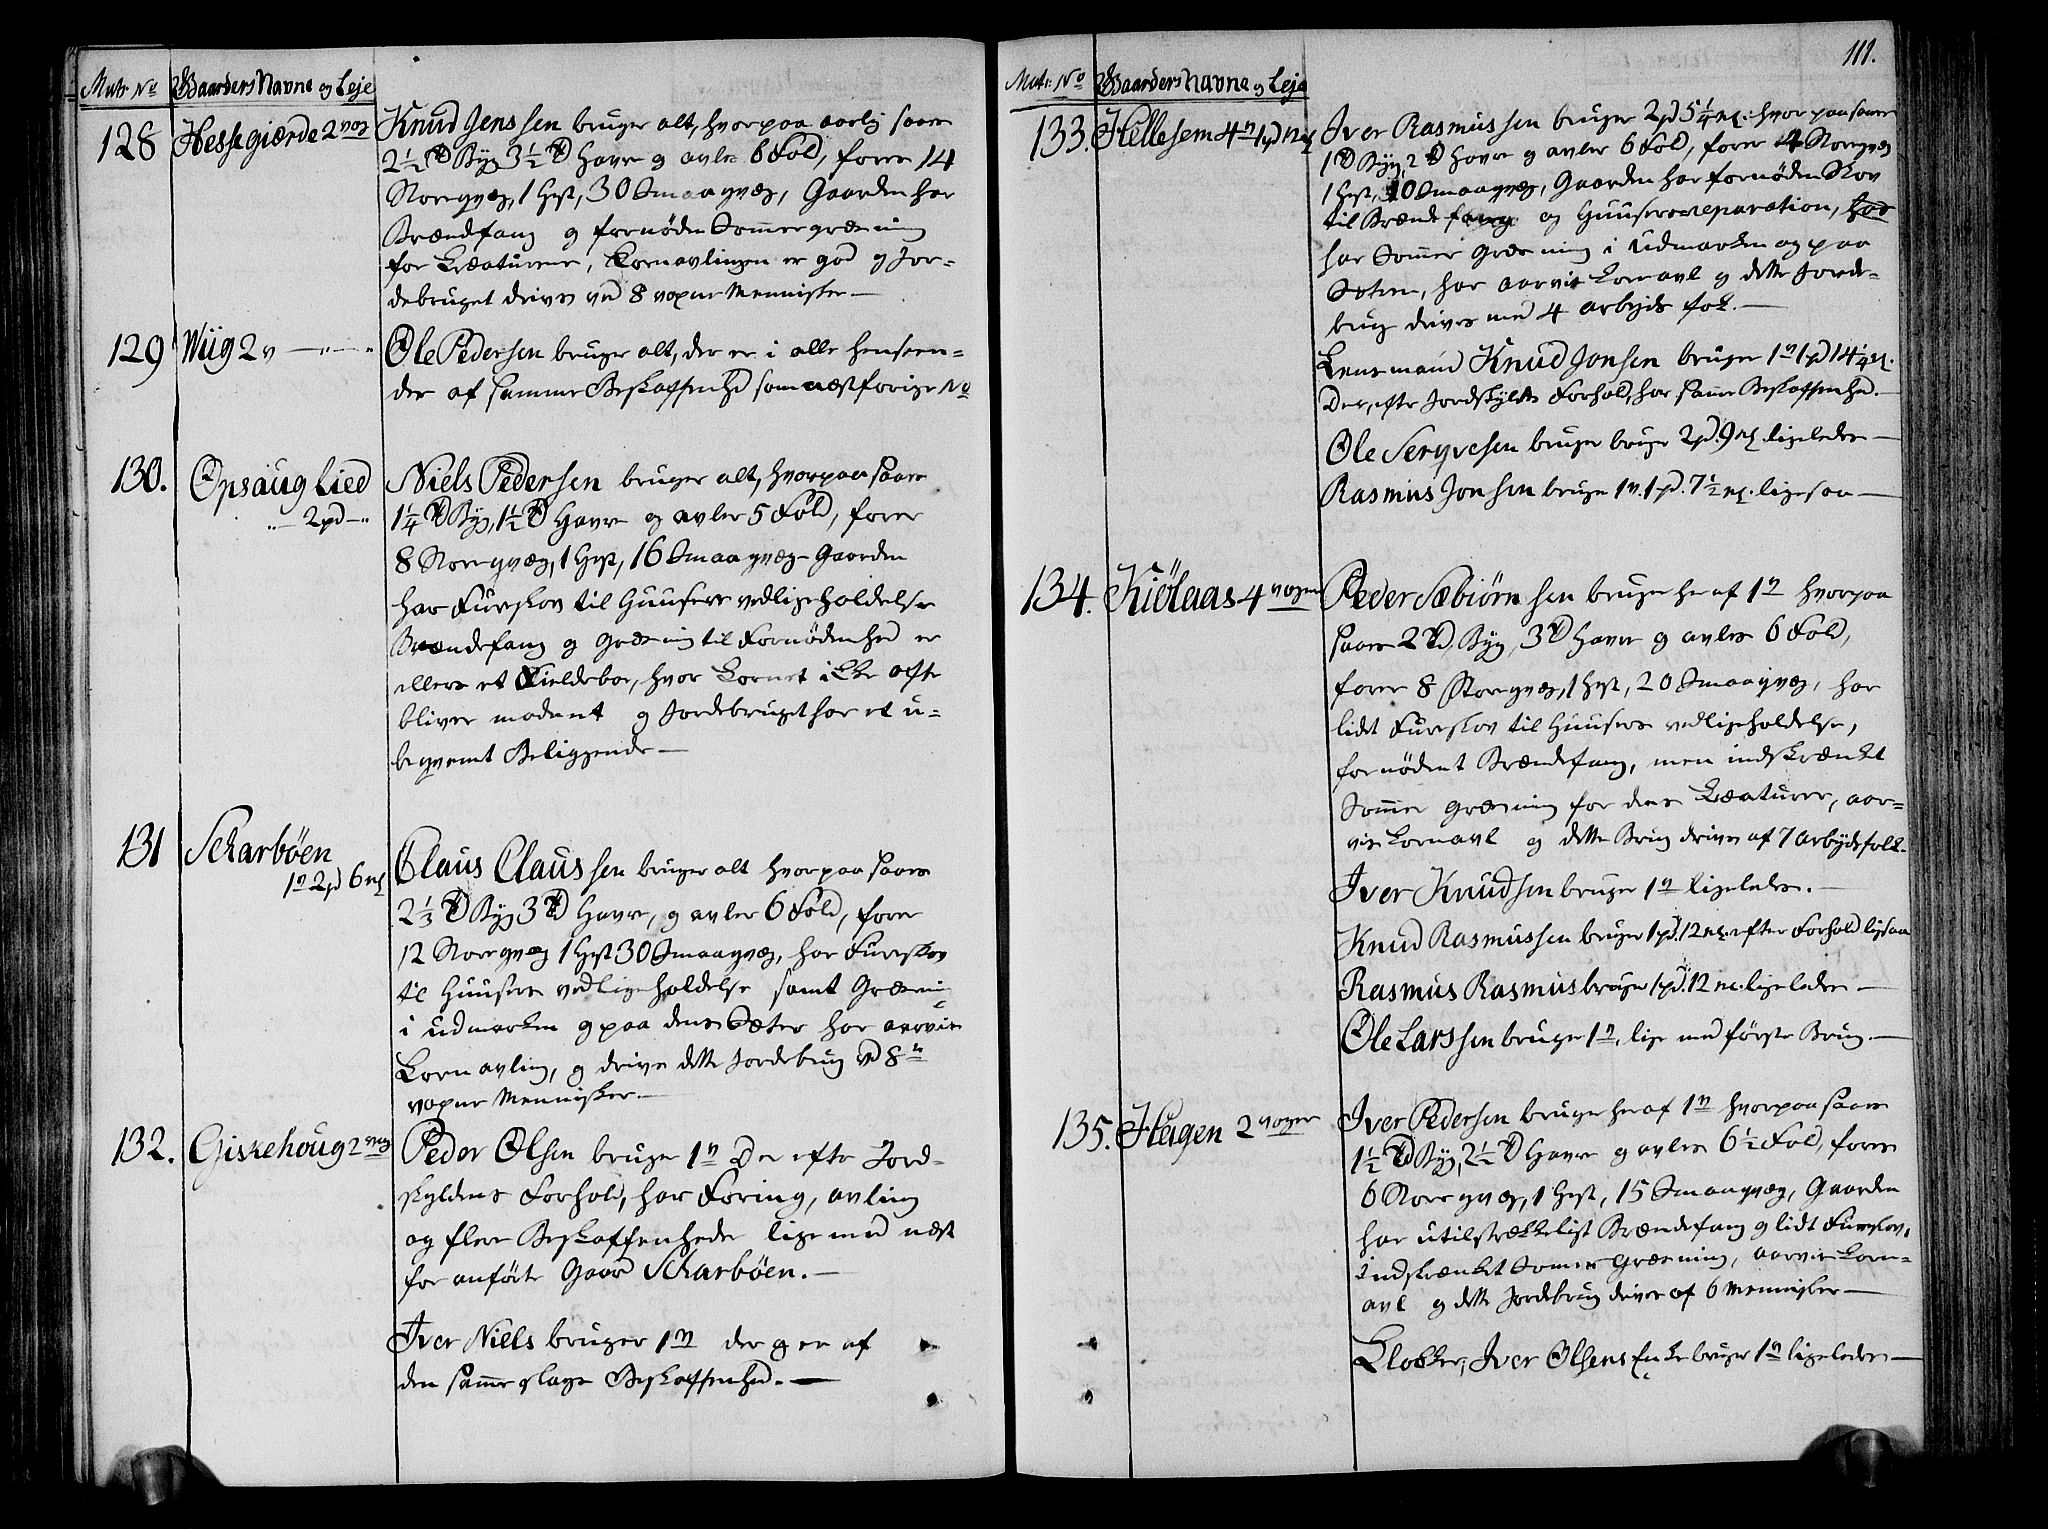 Matr: No Gaarders Navne og Leje
128 Hessegiærde 2 vog
Knud Jenssen bruger alt, hvorpaa aarlig saaes
2½ Td Byg 3½ Td Havre og avles 6 Fold, foreer 14
Storqvæg, 1 Hest, 30 Smaaqvæg, Gaarden har
Brændfang og fornøden Sommergræsning
for Creaturene, Kornavlingen er god og Jor-
debruget drives ved 8 voxne Mennisker —
129 Wiig 2 v — " — "
Ole Pedersen bruger alt, der er i alle henseen-
der af samme Beskaffenhed som næstforige No
130. Opsaug Lied
"— 2 pd — "
Niels Pedersen bruger alt, hvorpaa saaes
1¼ Td Byg, 1½ Td Havre og avler 5 Fold, foreer
8 Storqvæg, 1 Hest, 16 Smaaqvæg - Gaarden
har Furuskov til Huusers vedligeholdelse
Brændefang og Græsning til Fornødenhed er
ellers et Fieldeboe, hvor Kornet ikke ofte
bliver modent og Jordebruget har et u-
beqvemt Beliggende —
131 Scharbøen
1 v 2 pd 6 mk
Claus Claussen bruger alt hvorpaa saaes
2⅓ Td Byg 3 Td Havre, og avler 6 Fold, foreer
12 Storqvæg 1 Hest 30 Smaaqvæg, har Furuskov
til Huusers vedligeholdelse samt Græsning
i udmarken og paa dens Sæter har aarvis
Kornavling, og drives dette Jordebrug ved 8te
voxne Mennisker. —
132. Giskehoug 2 vog
Peder Olsen bruger 1 v Der efter Jord-
skyldens Forhold, har Foring, avling
og flere Beskaffenheder lige med næst
for anførte Gaard Scharbøen. —
Iver Niels bruger 1 v der og er af
den samme slags Beskaffenhed. —
111.
Matr: No Gaarders Navne og Leje
133. Hellesem 4 v 1 pd 12 mk
Iver Rasmussen bruger 2 pd 5¼ mk. hvorpaa saaes
1 Td Byg, 2 Td Havre og avler 6 Fold, foreer 4 Storqvæg
1 Hest, 10 Smaaqvæg, Gaarden har fornøden Skov
til Brændefang og Huusersreparation, har
har Sommer Græsning i Udmarken og paa
Sæteren, har aarvis Kornavl og dette Jorde-
brug drives med 4 arbeyds folk. —
Lensmand Knud Jonsen bruger 1 v 1 pd 14¼ mk.
Der, efter Jordskyldens Forhold, har samme Beskaffenhed. —
Ole Serqvesen bruger bruger 2 pd. 9 mk. ligeledes —
Rasmus Jonsen bruger 1 v. 1 pd. 7½ mk. ligesaa —
134. Kiølaas 4 voger
Peder Sæbiørnsen bruger her af 1 v hvorpaa
saaes 2 Td, Byg, 3 Td Havre og avles 6 Fold,
foreer 8 Storqvæg, 1 Hest, 20 Smaaqvæg, har
lidt Furuskov til Huusers vedligeholdelse,
fornødent Brændefang, men indskrænket
Sommer græsning for dens Creaturer, aar-
vis Kornavl og dette Brug drives af 7 arbeydsfolk. —
Iver Knudsen bruger 1 v ligeledes. —
Knud Rasmussen bruger 1 pd. 12 mk. efter Forhold ligesaa
Rasmus Rasmus bruger 1 pd. 12 mk. ligeledes —
Ole Larssen bruger 1 v, lige med første Brug. —
135. Heigen 2 voger
Iver Pedersen bruger her af 1 v hvorpaa saaes
1½ Td Byg, 2½ Td Havre og avles 6½ Fold, foreer
6 Storqvæg, 1 Hest, 15 Smaaqvæg, Gaarden
har utilstrækkeligt Brændefang og lidt Furuskov,
indskrænket Sommer Græsning, aarvis Korn-
avl og dette Jordebrug drives af 6 Mennisker —
Klokker, Iver Olsens Enke bruger 1 v ligeledes —